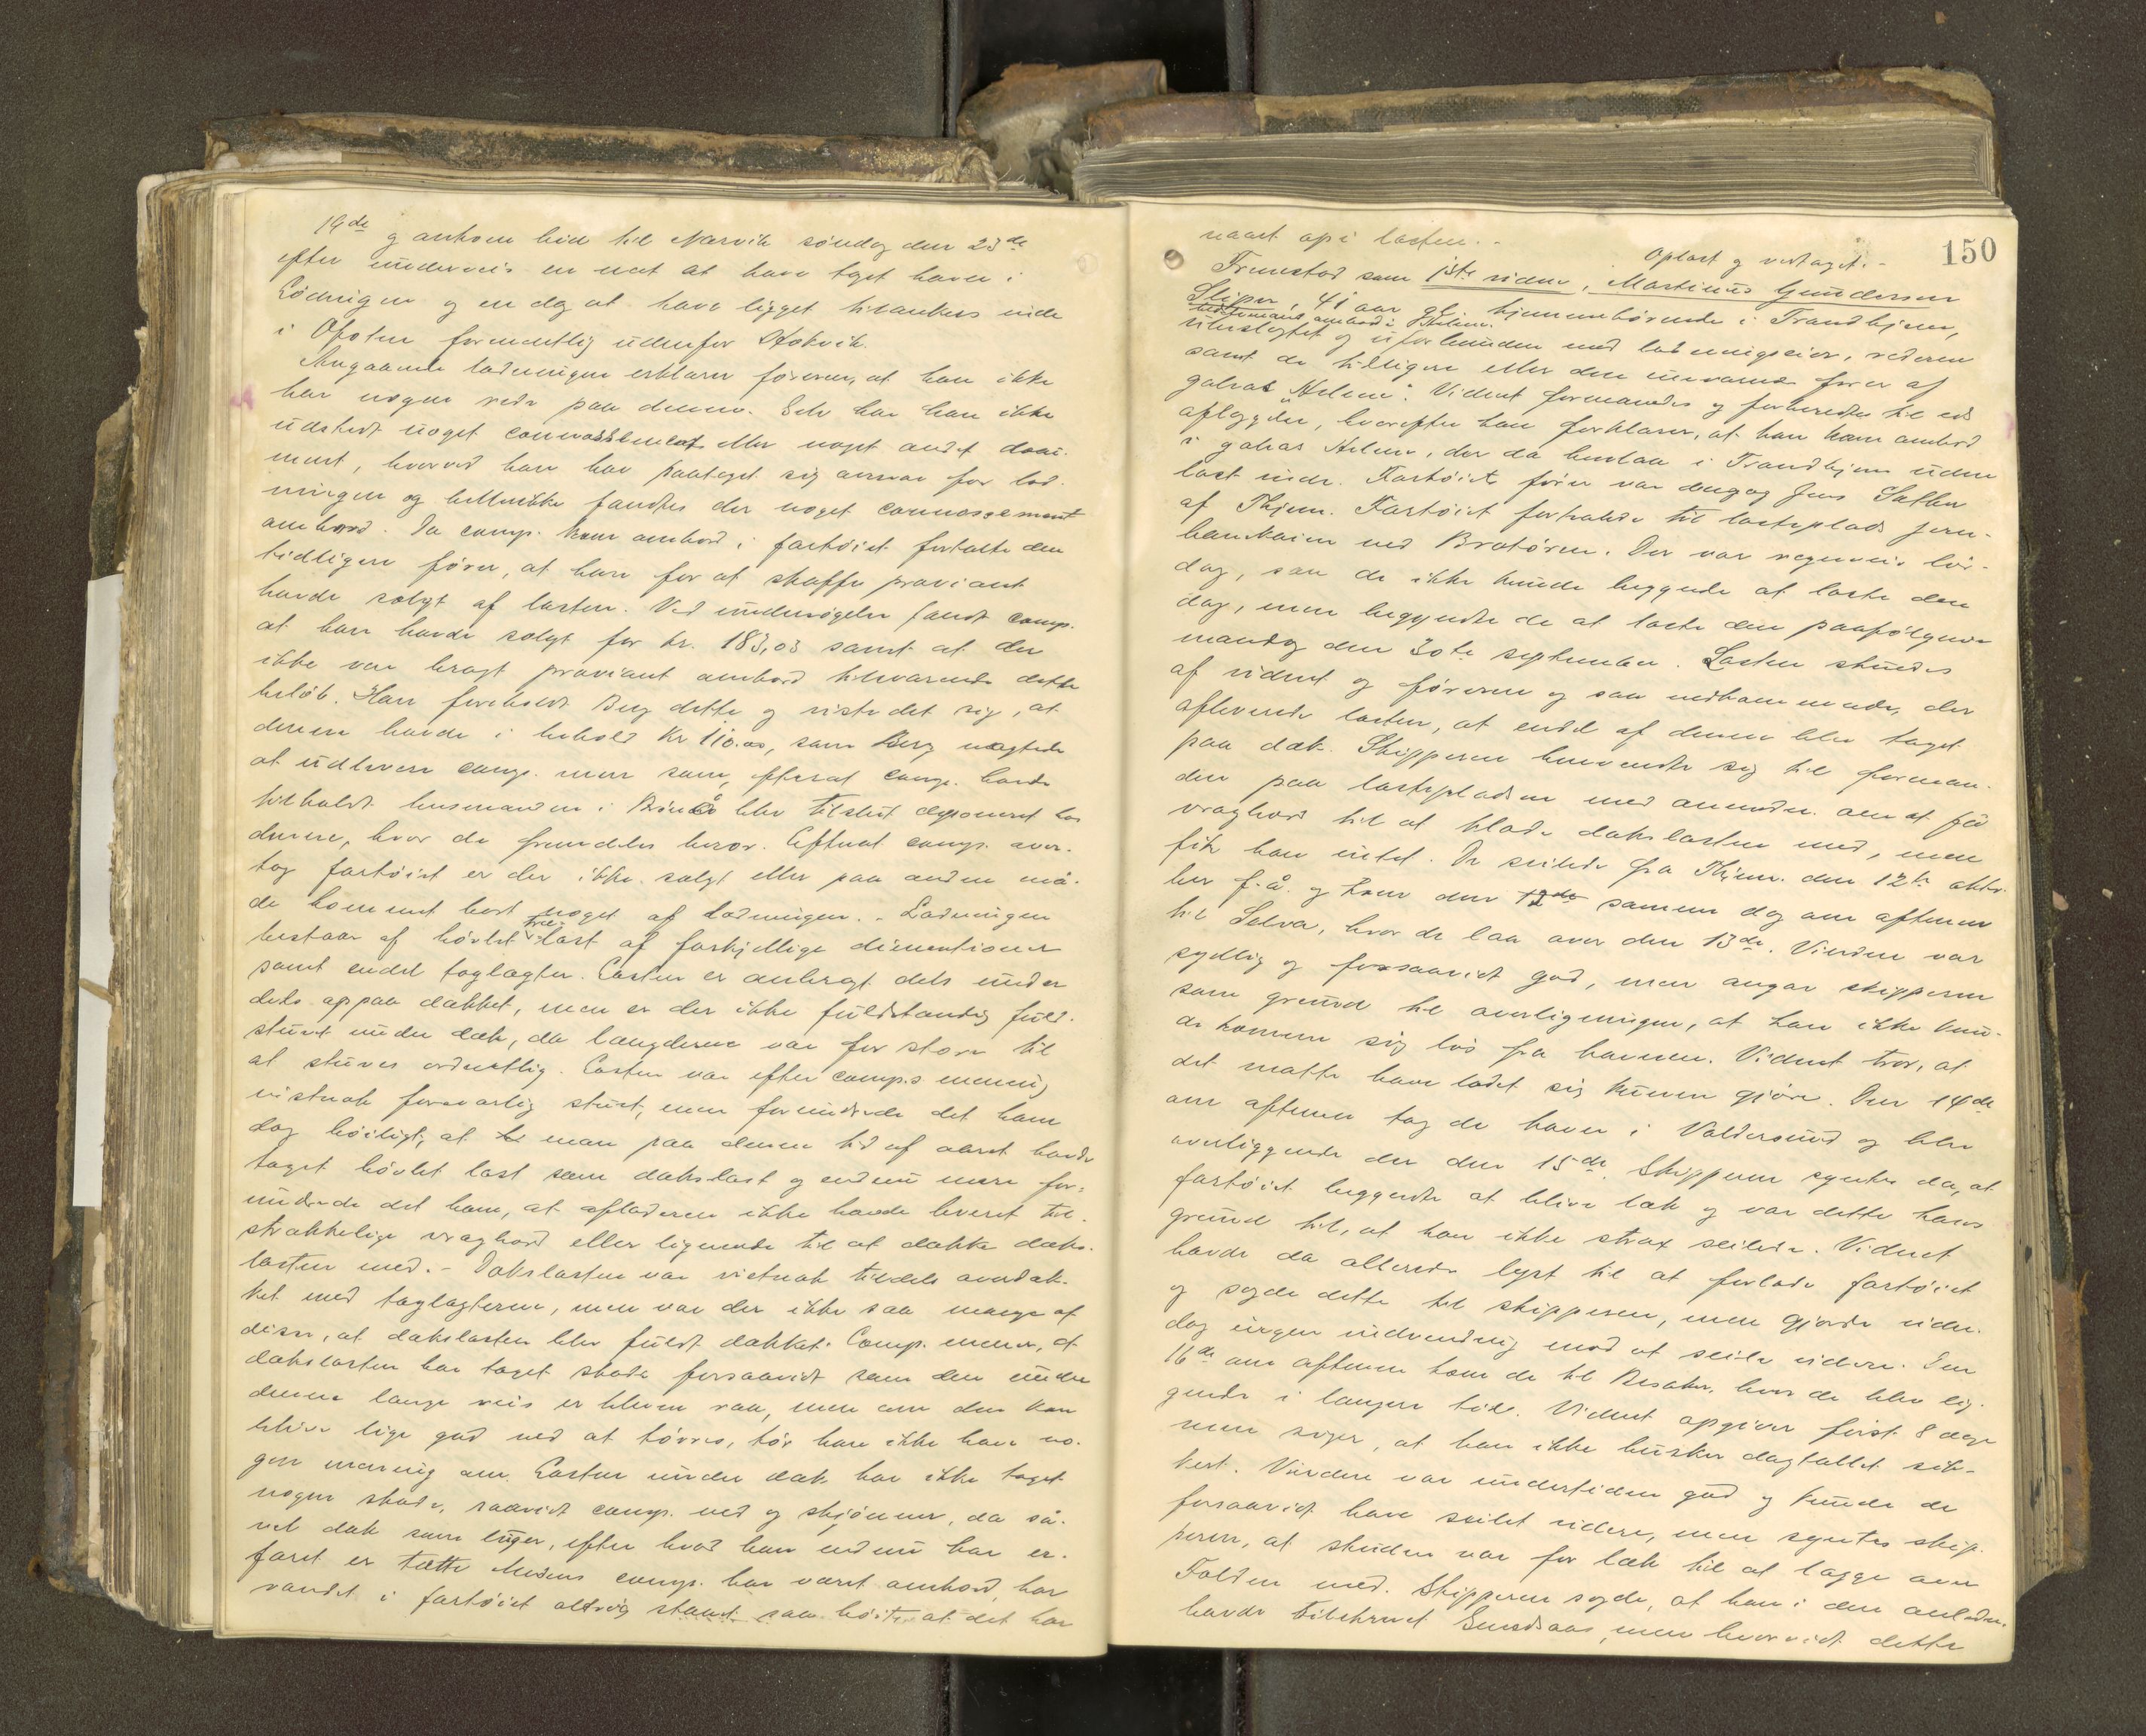 19de og ankom hid til Narvik söndag den 23de
efter underveis en nat at have taget havn i
Lödingen og en dag at have ligget tilankers inde
i Ofoten formentlig udenfor Stokvik.
Angaaende ladningen erklærer föreren, at han ikke
har nogen rede paa denne. Selv har han ikke
udstedt noget connossement eller noget andet doku-
ment, hvorved han har paataget sig ansvar for lad-
ningen og hellerikke fandtes der noget connossement
ombord. Da comp. kom ombord i fartöiet fortalte den
tidligere förer, at han for at skaffe proviant
havde solgt af lasten. Ved undersögelse fandt comp.
at han havde solgt for kr. 183,03 samt at der
ikke var bragt proviant ombord tilsvarende dette
belöb. Han foreholdt Berg dette og viste det sig, at
denne havde i behold Kr 110.00, som Berg nægtede
at udlevere comp. men som, efterat comp. havde
tilholdt lensmanden i blev tilslut deponeret hos
denne, hvor de fremdeles beror. Efterat comp. over-
tog fartöiet er der ikke solgt eller paa anden må-
de kommet bort noget af ladningen. - Ladningen
bestaar af hövlet trælast af forskjellige dimentioner
samt endel taglægter. Lasten er anbragt dels under
dels oppaa dækket, men er der ikke fuldstændig fuld-
stuet under dæk, da længderne var for store til
at stuves ordentlig. Lasten var efter comp.s mening
vistnok forsvarlig stuet, men forundrede det ham
dog höiligt, at man paa denne tid af aaret havde
taget hövlet last som dækslast og endnu mere for-
undrede det ham, at afladeren ikke havde leveret til-
strækkelige vragbord eller lignende til at dække dæks-
lasten med. - Dækslasten var vistnok tildels overdæk-
ket med taglægterne, men var der ikke saa mange af
disse, at dækslasten blev fuldt dækket. Comp. mener, at
dækslasten har taget skade forsaavidt som den under
denne lange reis er bleven raa, men om den kan
blive lige god ved at törres, tör han ikke have no-
gen mening om. Lasten under dæk har ikke taget
nogen skade, saavidt comp. ved og skjönner, da så-
vel dæk som luger, efter hvad han endnu har er-
faret er tætte. Medens comp. har været ombord, har
vandet i fartöiet aldrig staaet saa höit, at det har
150
naaet op i lasten. -
Oplæst og vedtaget. -
Fremstod som 1ste vidne, Martinus Gundersen
Sliper, 41 aar gl. hjemmehörende i Trondhjem,
ombord i Helene.
ubeslegtet og uforbunden med ladningseier, rederen
samt de tidligere eller den nuværende förer af
galeas "Helene". Vidnet formanedes og forberedtes til eds
aflæggelse, hvorefter han forklarer, at han kom ombord
i galeas Helene, der da henlaa i Trondhjem uden
last inde. Fartöiets förer var dengang Jens
af Thjem. Fartöiet forhalede til lasteplads jern-
banekaien ved Bratören. Der var regnveir lör-
dag, saa de ikke kunde begynde at laste den
dag, men begyndte de at laste den paafölgende
mandag den 30te september. Lasten stuedes
af vidnet og föreren og saa vedkommende, der
afleverede lasten, at endel af denne blev taget
paa dæk. Skipperen henvendte sig til forman-
den paa lastepladsen med anmoden om at få
vragbord til at klæde dækslasten med, men
fik han intet. De seilede fra Thjem. den 12te okto-
ber f.å. og kom den samme dag om aftenen
til Selva, hvor de laa over den 13de. Vinden var
sydlig og forsaavidt god, men angav skipperen
som grund til overligningen, at han ikke kun-
de komme sig lös fra havnen. Vidnet tror, at
det maatte have ladet sig kunne gjöre. Den 14de
om aftenen tog de havn i Valdersund og blev
overliggende der den 15de. Skipperen syntes da, at
fartöiet begyndte at blive læk og var dette hans
grund til, at han ikke strax seilede. Vidnet
havde da allerede lyst til at forlade fartöiet
og sagde dette til skipperen, men gjorde viden.
dog ingen indvending mod at seile videre. Den
16de om aftenen kom de til Besaker, hvor de blev lig-
gende i længere tid. Vidnet opgiver först 8 dage
men siger, at han ikke husker dagtallet sik-
kert. Vinden var undertiden god og kunde de
forsaavidt have seilet videre, men syntes skip-
peren, at skuden var for læk til at lægge over
Folden med. Skipperen sagde, at han i den anledn.
havde tilskrevet men hvorvidt dette